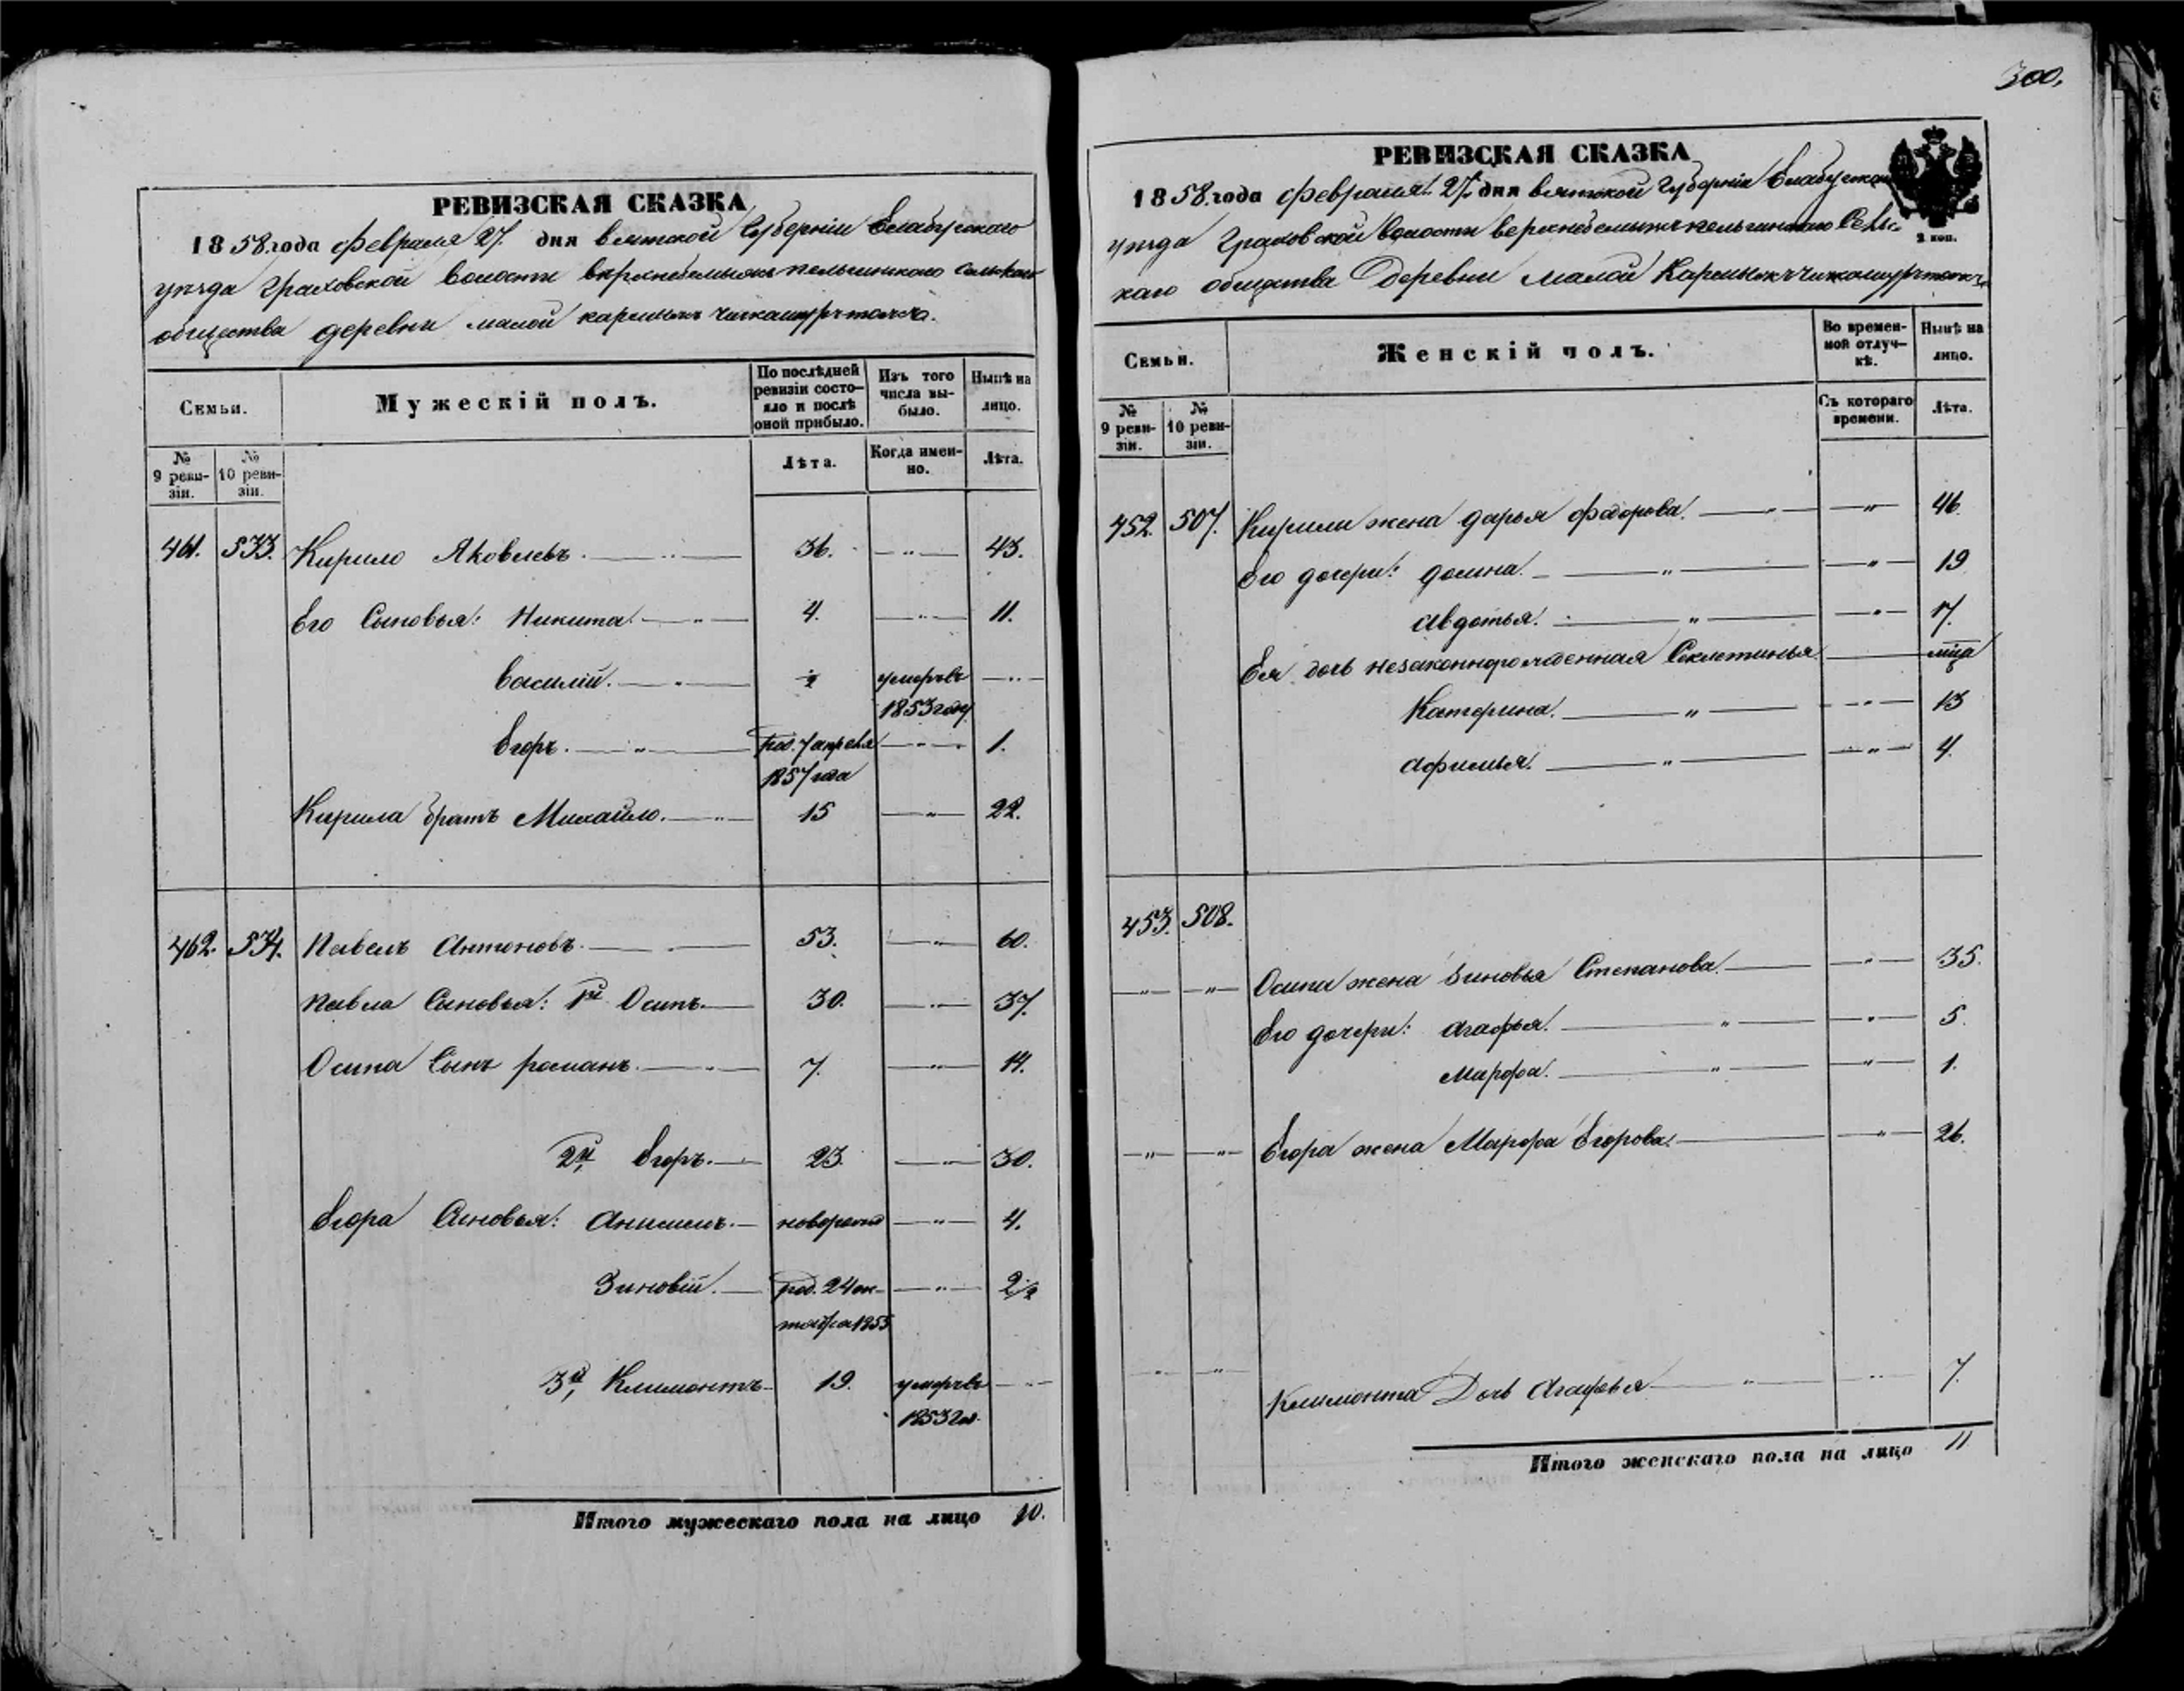 300.
РЕВИЗСКАЯ СКАЗКА
1858. года февраля 27. дня вятской Губернiи Елабугского
уезда Граховской волости
общества деревни малой
Семьи.
Мужескiй полъ.
По послѣдней ревизiи состояло и послѣ оной прибыло.
Изъ того числа выбыло.
Нынѣ на лицо.
№ 9 ревизiи.
№ 10 ревизiи.
Лѣта.
Когда именно.
Лѣта.
461. 533. Кирило Яковлевъ. 36. 43.
Его Сыновья: Никита. 4. 11.
Василiй. умеръ въ 1853 году
Егоръ. род. 7 апреля 1857 года 1.
Кирила братъ Михайло. 15 22.
462. 534. Павелъ Антоновъ. 53. 60.
Павла Сыновья: 1й Осипъ. 30. 37.
Осипа Сынъ романъ. 7. 14.
2й Егоръ. 23. 30.
Егора Сыновья: Анисимъ. 4.
Зиновiй. род. 24 октября 1855 2 1/2
3й Климонтъ 19. умеръ въ 1853 го.
Итого мужескаго пола на лицо 10.
РЕВИЗСКАЯ СКАЗКА
1858. года февраля 27. дня вятской Губернiи
уезда Граховской Волости
каго общества Деревни малой
2 коп.
Семьи.
Женскiй полъ.
Во временной отлучкѣ.
Нынѣ на лицо.
№ 9 ревизiи.
№ 10 ревизiи.
Съ котораго времени.
Лѣта.
452. 507. Кирили жена дарья Федорова. 46.
Его дочери: домна. 19
авдотья. 17.
Ея дочь незаконнорожденная Секлетинья
Катерина. 13
афимья. 4.
453. 508.
Осипа жена Зиновья Степанова. 35.
Его дочери: агафья. 5.
Марфа. 1.
Егора жена Марфа Егорова. 26.
Климонта Дочь Агафья 7.
Итого женскаго пола на лицо 11